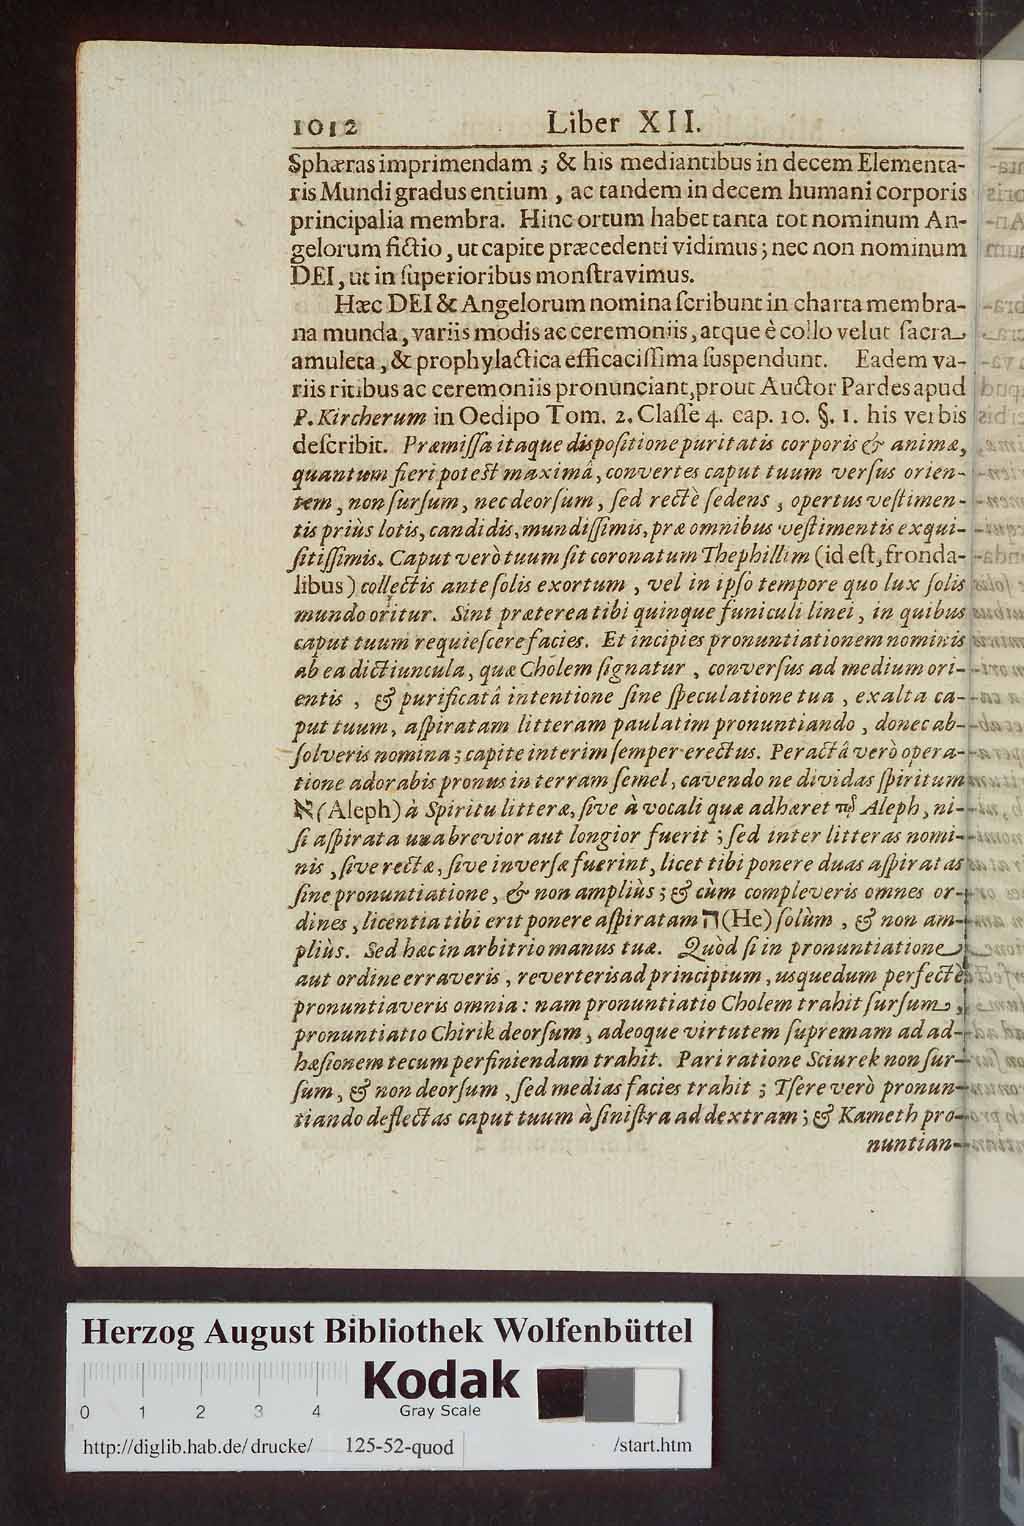 1012 Liber XII.
Sphæras imprimendam ; & his mediantibus in decem Elementa-
ris Mundi gradus entium , ac tandem in decem humani corporis
principalia membra. Hinc ortum habet tanta tot nominum An-
gelorum fictio , ut capite præcedenti vidimus ; nec non nominum
DEI , ut in ſuperioribus monſtravimus.
Hæc DEI & Angelorum nomina ſcribunt in charta membra-
na munda , variis modis ac ceremoniis , atque è collo velut ſacra
amuleta , & prophylactica efficaciſſima ſuſpendunt. Eadem va-
riis ritibus ac ceremoniis pronunciant, prout Auctor Pardes apud
P. Kircherum in Oedipo Tom. 2. Claſſe 4. cap. 10. §. 1. his verbis
deſcribit. Præmiſſa itaque diſpoſitione puritatis corporis & animæ,
quantum fieri poteſt maximâ, convertes caput tuum verſus orien-
tem , non ſurſum , nec deorſum , ſed rectè ſedens , opertus veſtimen-
tis priùs lotis, candidis, mundiſſimis, præ omnibus veſtimentis exqui-
ſitiſſimis. Caput verò tuum ſit coronatum Thephillim (id eſt, fronda-
libus) collectis ante ſolis exortum , vel in ipſo tempore quo lux ſolis
mundo oritur. Sint præterea tibi quinque funiculi linei , in quibus
caput tuum requieſcere facies. Et incipies pronuntiationem nominis
ab ea dictiuncula, quæ Cholem ſignatur , converſus ad medium ori-
entis , & purificatâ intentione ſine ſpeculatione tua , exalta ca-
put tuum , aſpiratam litteram paulatim pronuntiando , donec ab-
ſolveris nomina ; capite interim ſemper erectus. Peractâ verò opera-
tione adorabis pronus in terram ſemel, cavendo ne dividas ſpiritum
א (Aleph) à Spiritu litteræ, ſive à vocali quæ adhæret τῷ Aleph , ni-
ſi aſpirata una brevior aut longior fuerit ; ſed inter litteras nomi-
nis , ſive rectæ, ſive inverſæ fuerint, licet tibi ponere duas aſpiratas
ſine pronuntiatione , & non ampliùs ; & cùm compleveris omnes or-
dines , licentia tibi erit ponere aſpiratam ה (He) ſolùm , & non am-
pliùs. Sed hæc in arbitrio manus tuæ. Quòd ſi in pronuntiatione
aut ordine erraveris , reverteris ad principium , uſquedum perfectè
pronuntiaveris omnia : nam pronuntiatio Cholem trahit ſurſum ,
pronuntiatio Chirik deorſum , adeoque virtutem ſupremam ad ad-
hæſionem tecum perfiniendam trahit. Pari ratione Sciurek non ſur-
ſum , & non deorſum , ſed medias facies trahit ; Tſere verò pronun-
tiando deflectas caput tuum à ſiniſtra ad dextram ; & Kameth pro-
nuntian-
Herzog August Bibliothek Wolfenbüttel
Kodak
0 1 2 3 4 Gray Scale
http://diglib.hab.de/drucke/ 125-52-quod /start.htm